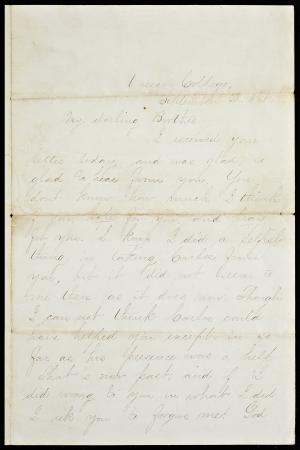 College,
September
My darling Brother
I received your
letter today, and was glad, so
glad to hear from you. You
don't know how much I think
for you, and pray
for you. I know I did a selfish
thing in taking Carlos from
you, but it did not seem to
me then as it does now. Though
I can not think Carlos could
have helped you except in so
far as his presence was a help
That is now past, and if I
did wrong to you in what I did
I ask you to forgive me. God